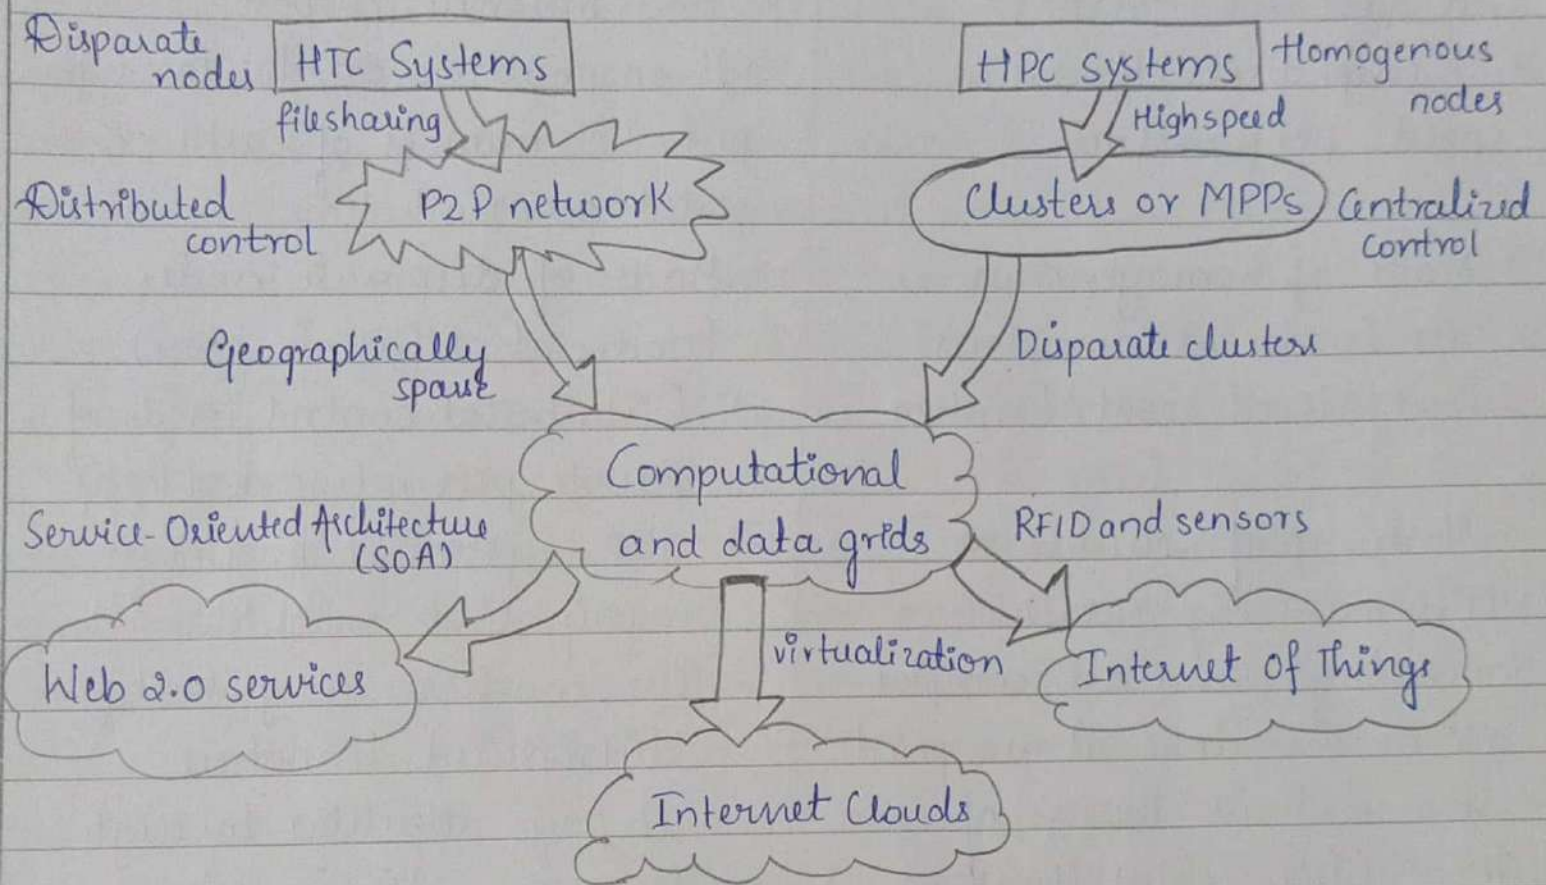 Disparate
nodes
HTC Systems
HPC systems
Homogenous
nodes
filesharing
Highspeed
Distributed
control
P2P network
Clusters or MPPs
Centralized
control
Geographically
sparse
Disparate clusters
Computational
and data grids
Service-Oriented Architecture
(SOA)
RFID and sensors
Web 2.0 services
virtualization
Internet of Things
Internet Clouds